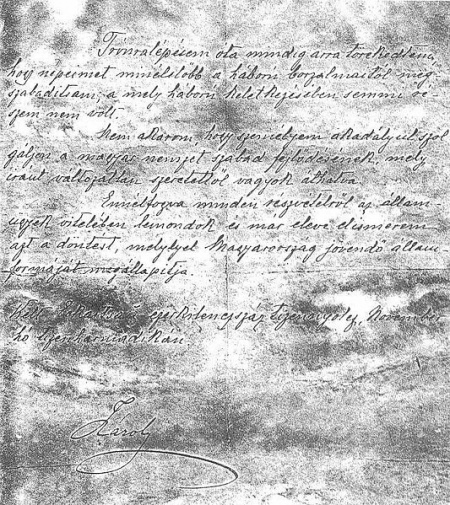 Trónralépésem óta mindig arra törekedtem,
hogy népeimet minélelőbb a háború borzalmaitól meg
szabadítsam, a mely háború keletkezésében semmi ré
szem nem volt.
Nem akarom, hogy személyem akadályul szol
gáljon a magyar nemzet szabad fejlődésének, mely
iránt változatlan szeretettől vagyok áthatva.
Ennélfogva minden részvételről az állam
ügyek vitelében lemondok és már eleve elismerem
azt a döntést, mellyel Magyarország jövendő állam
formáját megállapítja.
Kelt ezerkilencszáz tizennyolcz, November
hó tizenharmadikán.
Károly